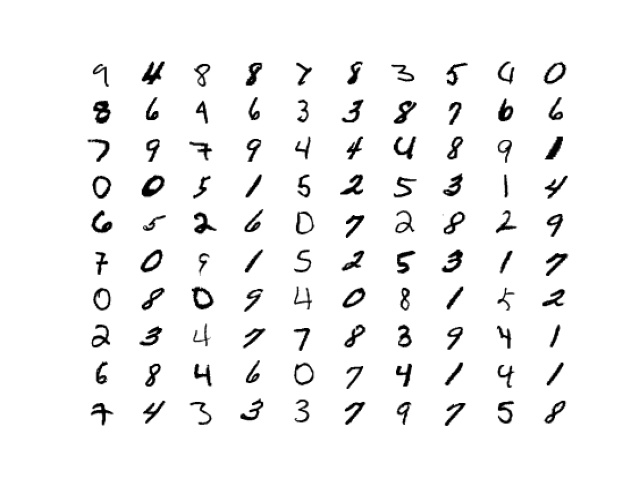 9 4 8 8 7 8 3 5 4 0
8 6 9 6 3 3 8 7 6 6
7 9 7 9 4 4 4 8 9 1
0 0 5 1 5 2 5 3 1 4
6 5 2 6 0 7 2 8 2 9
7 0 9 1 5 2 5 3 1 7
0 8 0 9 4 0 8 1 5 2
2 3 4 7 7 8 3 9 4 1
6 8 4 6 0 7 4 1 4 1
7 4 3 3 3 7 9 7 5 8